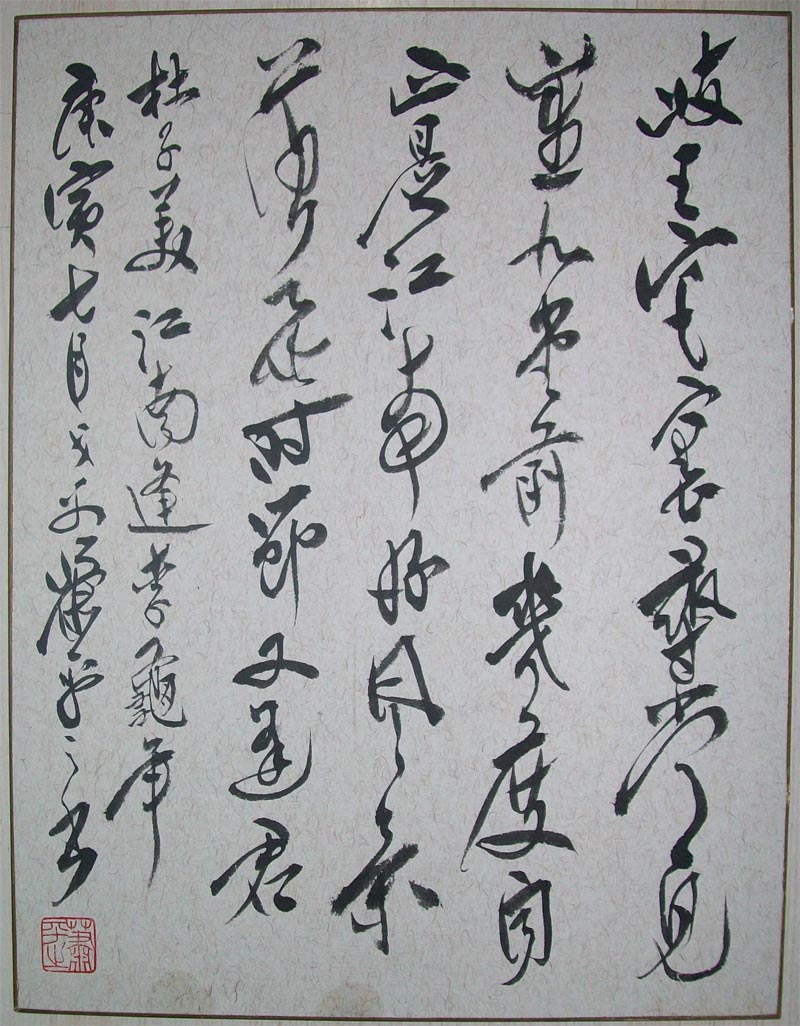 岐王宅裏尋常見
崔九堂前幾度聞
正是江南好風景
落花时節又逢君
杜子美江南逢李龜年
庚寅七月蕭平之書